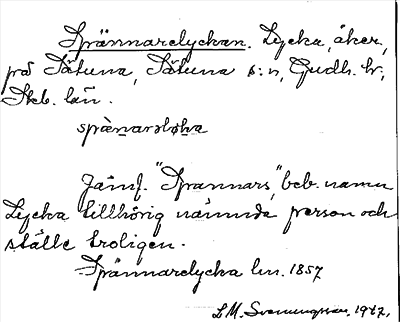 Spännarelyckan. Lycka, åker,
på Sätuna, Sätuna s:n, Gudh. hr,
Skb. län.
spænarsløka
Jämf. "Spannars", beb. namn
Lycka tillhörig nämnda person och
ställe troligen.
Spännarelycka lm. 1857
L.M. Svenungsson. 1927.